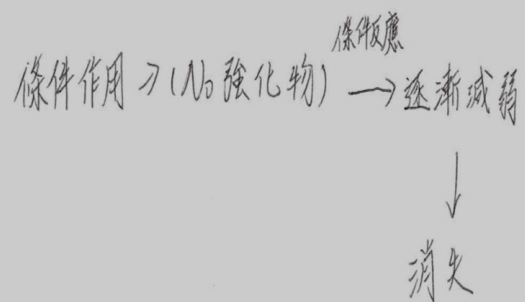 條件反應
條件作用 → (No 強化物) → 逐漸減弱
↓
消失